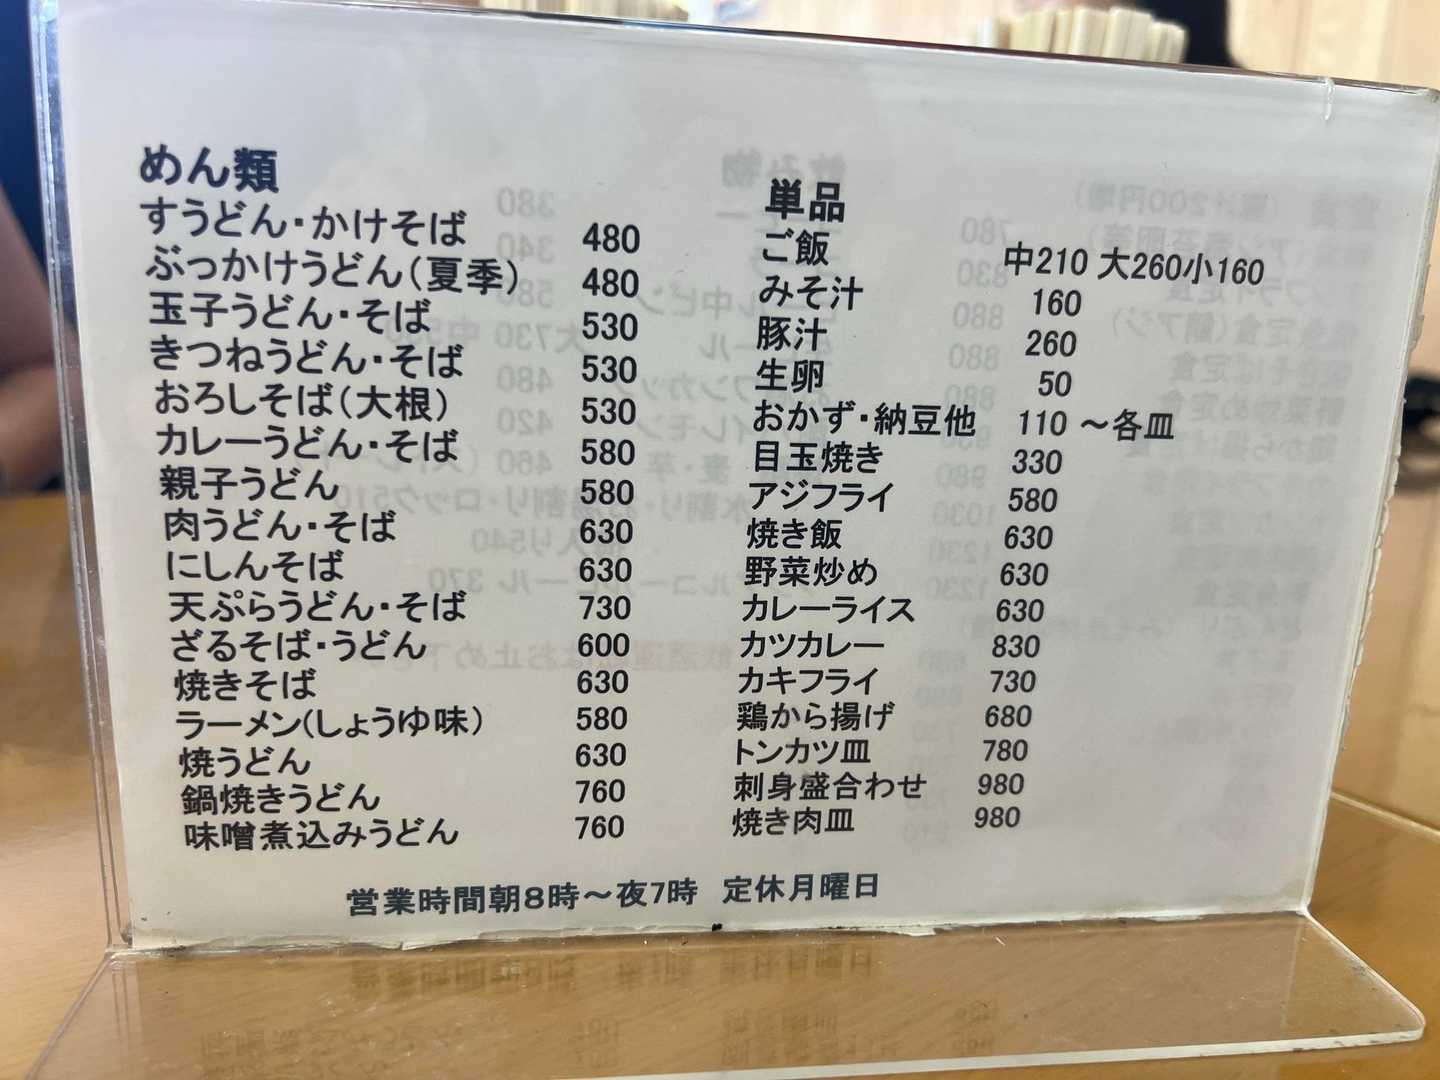 めん類
すうどん・かけそば 480
ぶっかけうどん（夏季） 480
玉子うどん・そば 530
きつねうどん・そば 530
おろしそば（大根） 530
カレーうどん・そば 580
親子うどん 580
肉うどん・そば 630
にしんそば 630
天ぷらうどん・そば 730
ざるそば・うどん 600
焼きそば 630
ラーメン（しょうゆ味） 580
焼うどん 630
鍋焼きうどん 760
味噌煮込みうどん 760
単品
ご飯 中210 大260小160
みそ汁 160
豚汁 260
生卵 50
おかず・納豆他 110 ～各皿
目玉焼き 330
アジフライ 580
焼き飯 630
野菜炒め 630
カレーライス 630
カツカレー 830
カキフライ 730
鶏から揚げ 680
トンカツ皿 780
刺身盛合わせ 980
焼き肉皿 980
営業時間朝8時～夜7時 定休月曜日